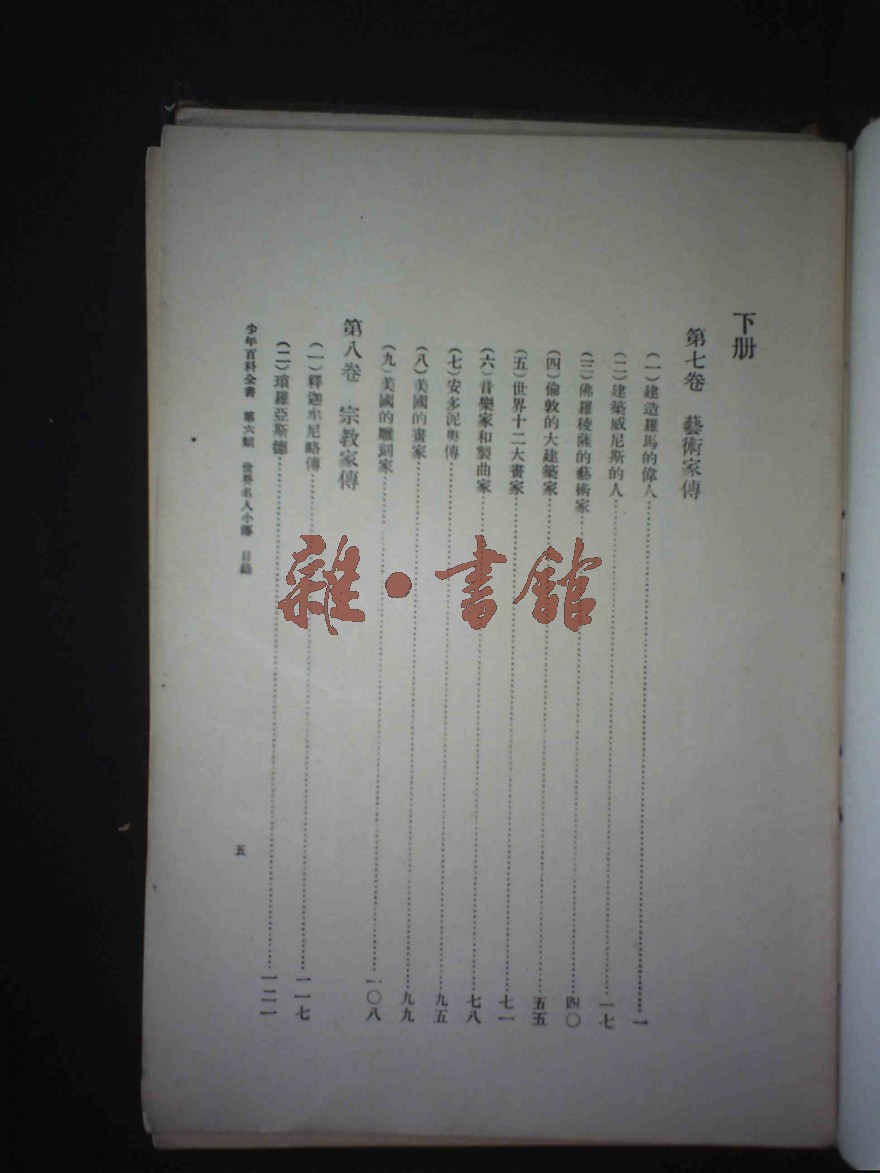 下册
第七卷 藝術家傳
(一)建造羅馬的偉人 一
(二)建築威尼斯的人 一七
(三)佛羅稜薩的藝術家 四〇
(四)倫敦的大建築家 五五
(五)世界十二大畫家 七一
(六)音樂家和製曲家 七八
(七)安多泥奧傳 九五
(八)美國的畫家 九九
(九)美國的雕刻家 一〇八
第八卷 宗教家傳
(一)釋迦牟尼略傳 一一七
(二)瑣羅亞斯德 一二一
少年百科全書 第六類 世界名人小傳 目錄
五
雜·書館